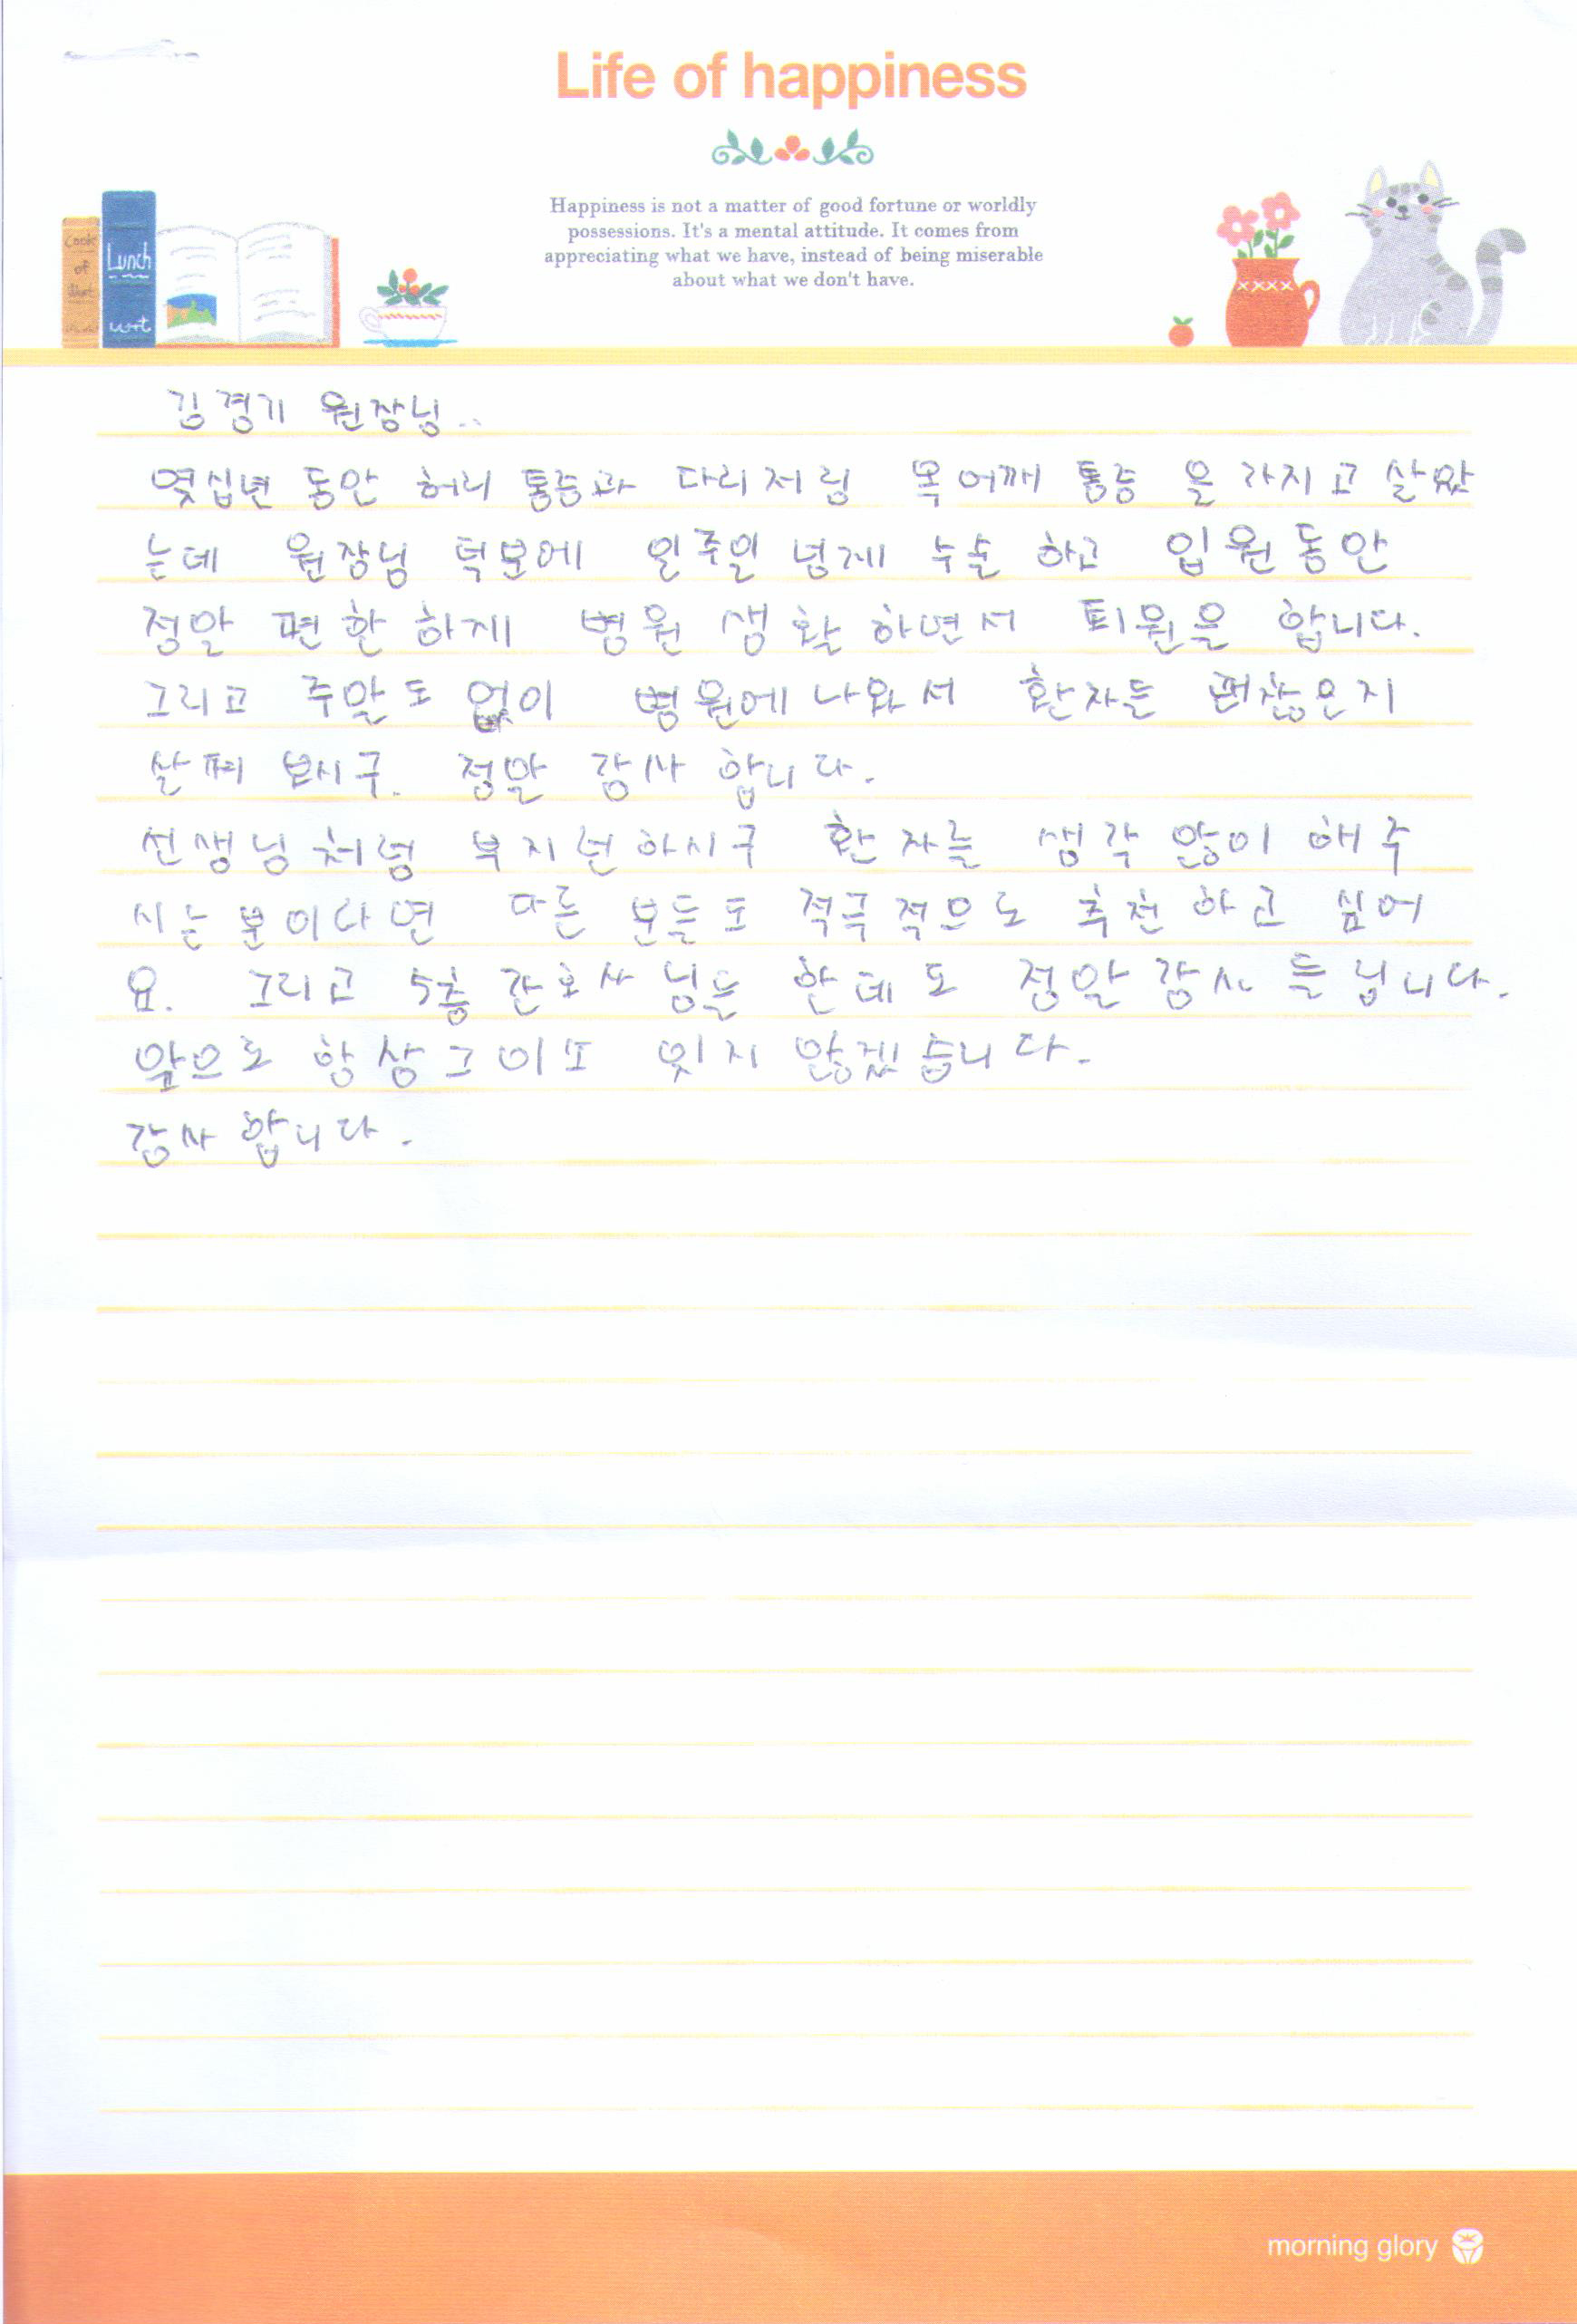 Life of happiness
Happiness is not a matter of good fortune or worldly
possessions. It's a mental attitude. It comes from
appreciating what we have, instead of being miserable
about what we don't have.
Cook
of
Lunch
김경기 원장님..
몇십년 동안 허리 통증과 다리저림 목 어깨 통증 을 가지고 살았
는데 원장님 덕분에 일주일 넘게 수술 하고 입원 동안
정말 편한 하게 병원 생활 하면서 퇴원을 합니다.
그리고 주말도 없이 병원에 나와서 환자들 괜찮은지
살펴 보시구. 정말 감사 합니다.
선생님처럼 부지런하시구 환자를 생각 많이 해주
시는 분이라면 다른 분들도 적극적으로 추천 하고 싶어
요. 그리고 5층 간호사 님들 한테도 정말 감사 드립니다.
앞으로 항상 그 이또 잊지 않겠습니다.
감사 합니다.
morning glory